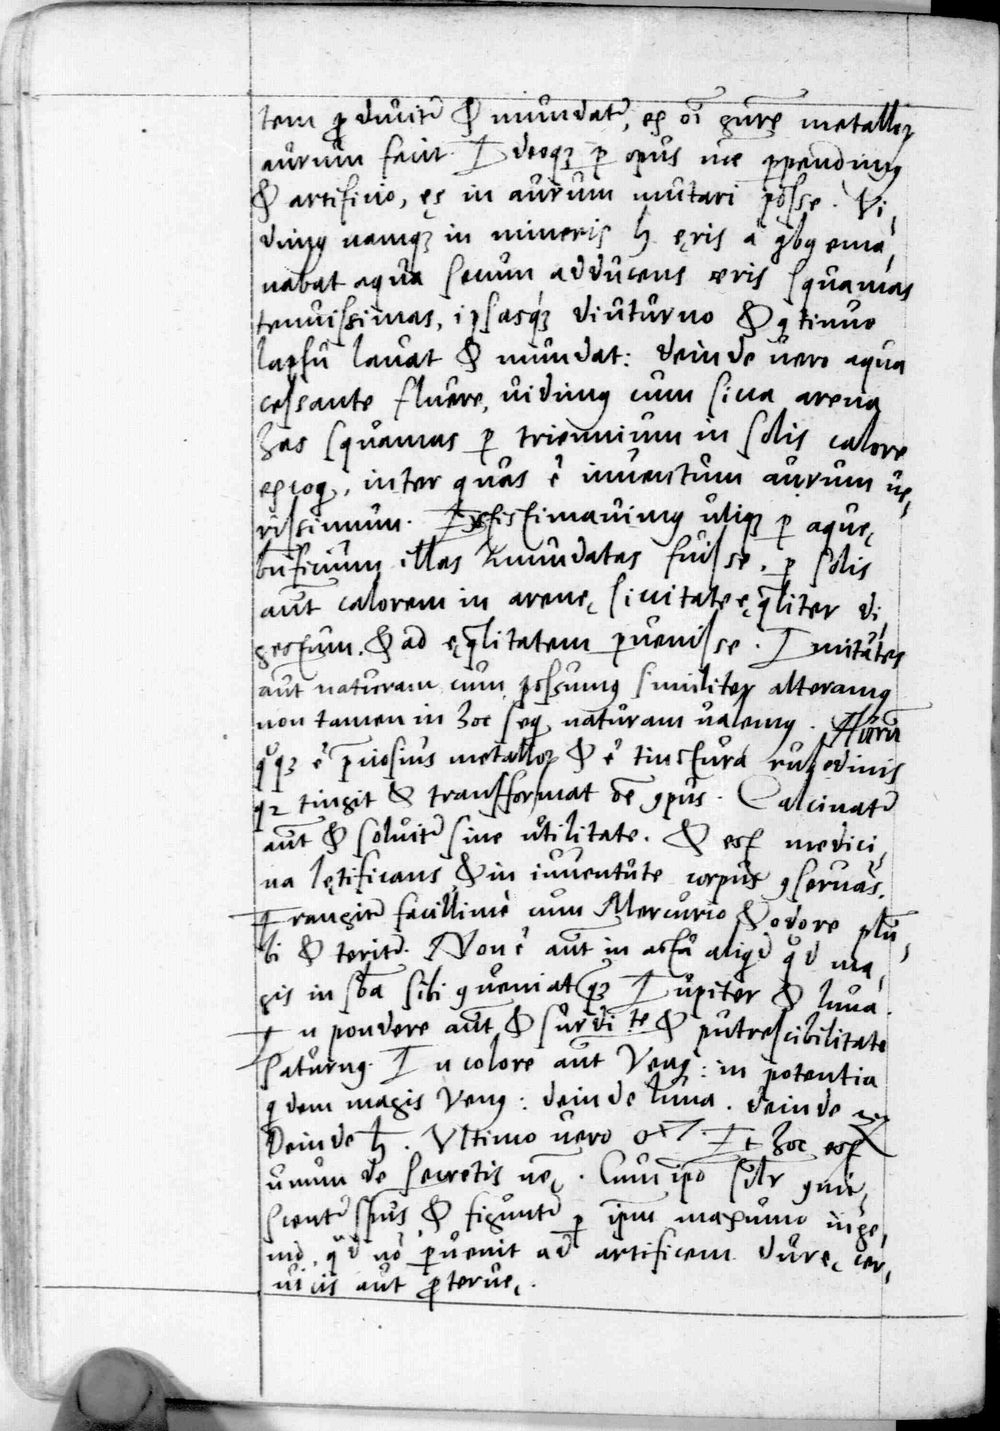 tem ꝑ diuitẽ & mundatẽ, ex oĩ gũre metalloꝝ
aurum facit. Ideoqꝫ ꝑ opus nc̃ ꝑpendimꝰ
& artificio, ęs in aurum mutari posse. Vi,
dimꝰ namqꝫ in mineris ♄ ęris à qbꝰ ema,
nabat aqua secum adducens æris squamas
tenuissimas, ipsasqꝫ diuturno & ꝯtinuo
lapsu lauat & mundat: deinde uero aqua
cessante fluere, uidimꝰ cum sicca arena
has squamas ꝑ triennium in solis calore
excoq, inter quas ẽ inuentum aurum ue,
rissimum. Existimauimꝰ utiqꝫ ꝑ aquę
bñficium illas mundatas fuisse, ꝑ solis
aũt calorem in arenę siccitate ęq̃liter di,
gestum, & ad ęq̃litatem ꝑuenisse. Imitãtes
aut naturam cum possumꝰ similiter alteramꝰ
non tamen in hoc seq naturam ualemꝰ. Aurũ
qͦqꝫ ẽ p̃ciosius metalloꝝ & ẽ tinctura rubedinis
qꝛ tingit & transformat õe ꝯpus. Calcinatẽ
aũt & soluitẽ sine utilitate. & est medici,
na lętificans & in iuuentute corpus ꝯseruãs.
Frangitẽ facillimè cum Mercurio & odore plũ,
bi & teritẽ. Non ẽ aũt in actu aliqd qd ma,
gis in sb̃a sibi ꝯueniat qꝫ Iupiter & luna.
In pondere aũt & surdi te & putrescibilitate
Saturnꝰ. In colore aut Venꝰ: in potentia
qdem magis Venꝰ: deinde luna. deinde ♃
Deinde ♄. Vltimo uero ♂. Et hoc est
unum de secretis nr̃ę. Cum ipõ silr ꝯmi,
scentẽ sp̃us & figuntẽ ꝑ ip̃m maxumo inge,
nio, qd nõ ꝑuenit ad artificem durę cer,
uicis aut ꝓteruę.